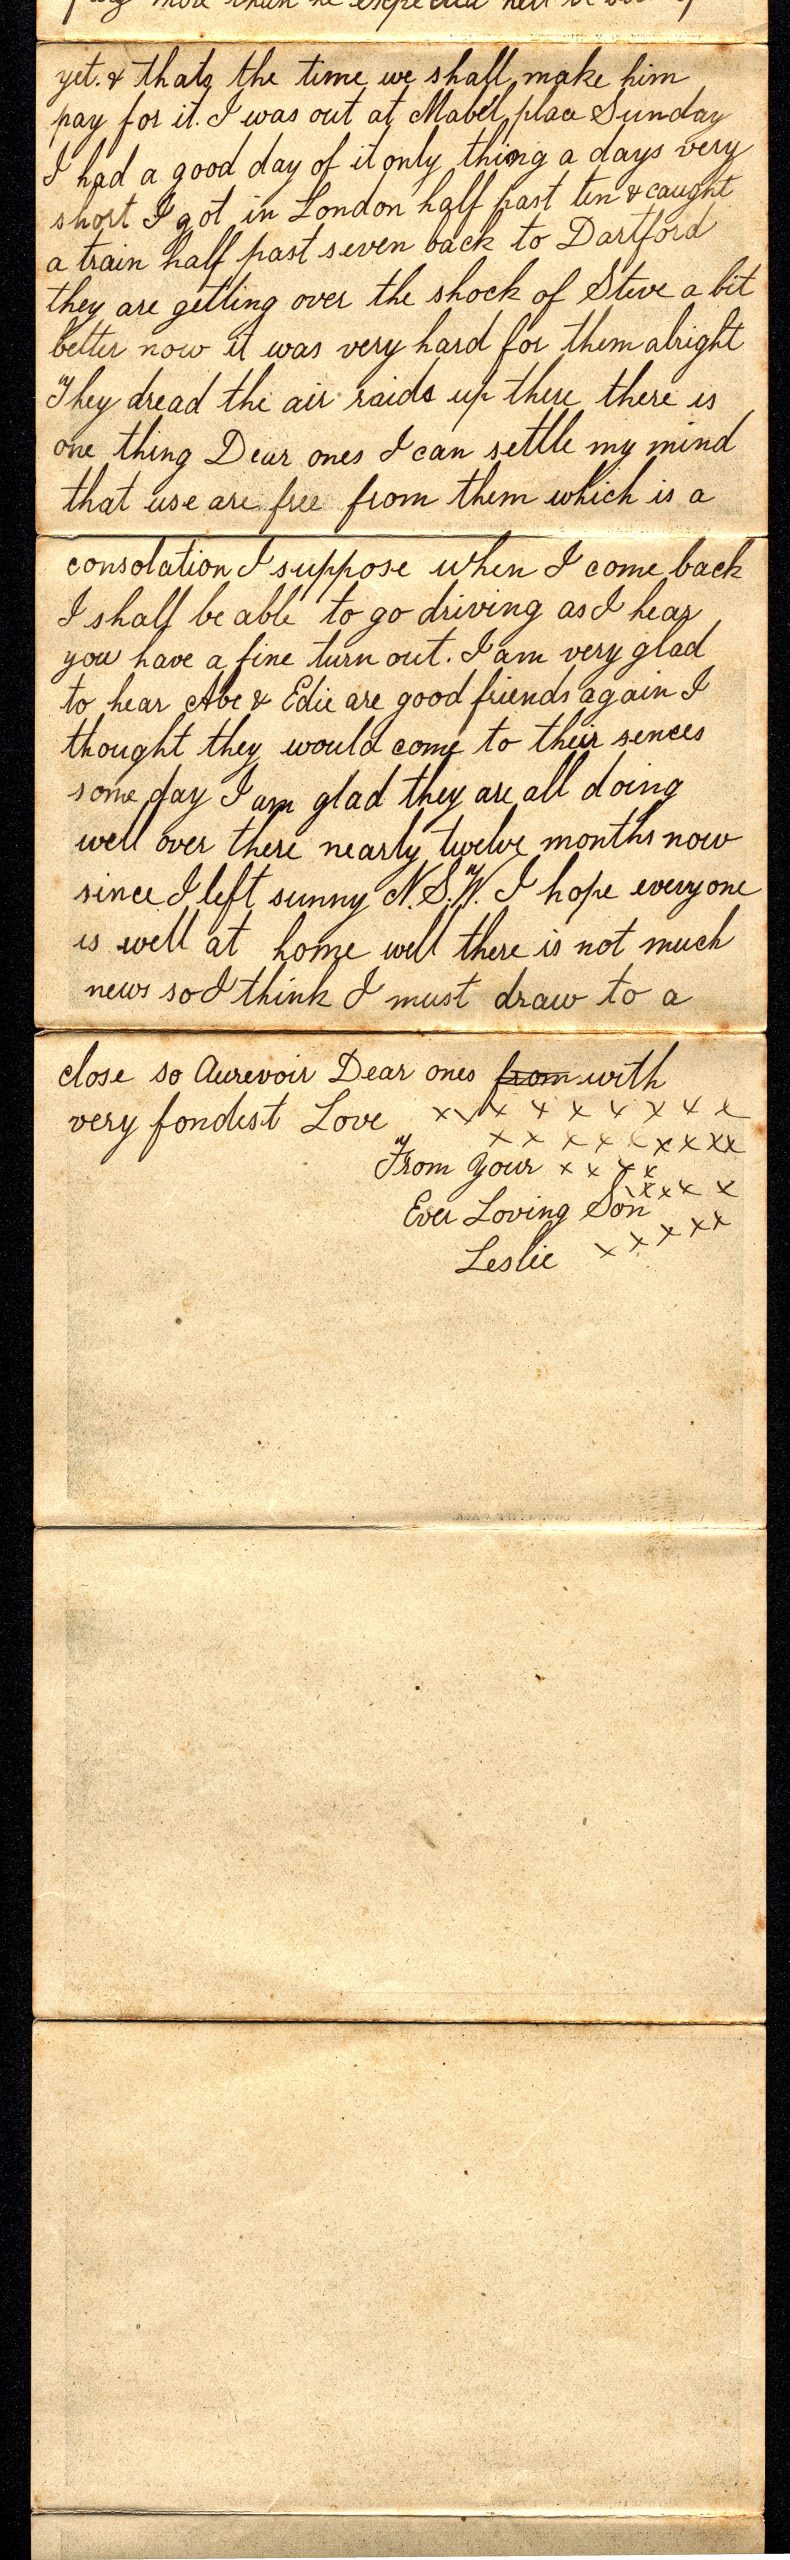 more than he expected
yet. & thats the time we shall make him
pay for it. I was out at Mabel place Sunday
I had a good day of it only thing a days very
short I got in London half past ten & caught
a train half past seven back to Dartford
they are getting over the shock of Steve a bit
better now it was very hard for them alright
They dread the air raids up there there is
one thing Dear ones I can settle my mind
that use are free from them which is a
consolation I suppose when I come back
I shall be able to go driving as I hear
you have a fine turn out. I am very glad
to hear Abe & Edie are good friends again I
thought they would come to their sences
some day I am glad they are all doing
well over there nearly twelve months now
since I left sunny N.S.W. I hope everyone
is well at home well there is not much
news so I think I must draw to a
close so Aurevoir Dear ones from with
very fondest Love x x x x x x x x x
x x x x x x x x x
From Your x x x x
x x x x x
Ever Loving Son
Leslie x x x x x